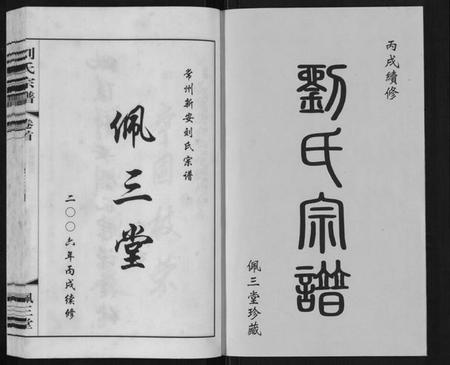 丙戌續修
劉氏宗譜
佩三堂珍藏
常州新安刘氏宗谱
佩三堂
二〇〇六年丙戌续修
刘氏宗谱
卷首
佩三堂